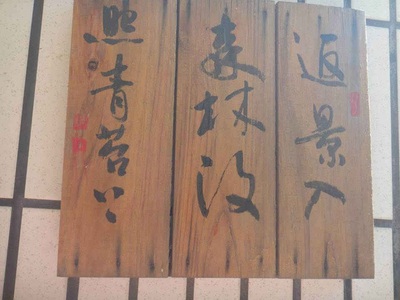 返景入
森林復
照青苔上